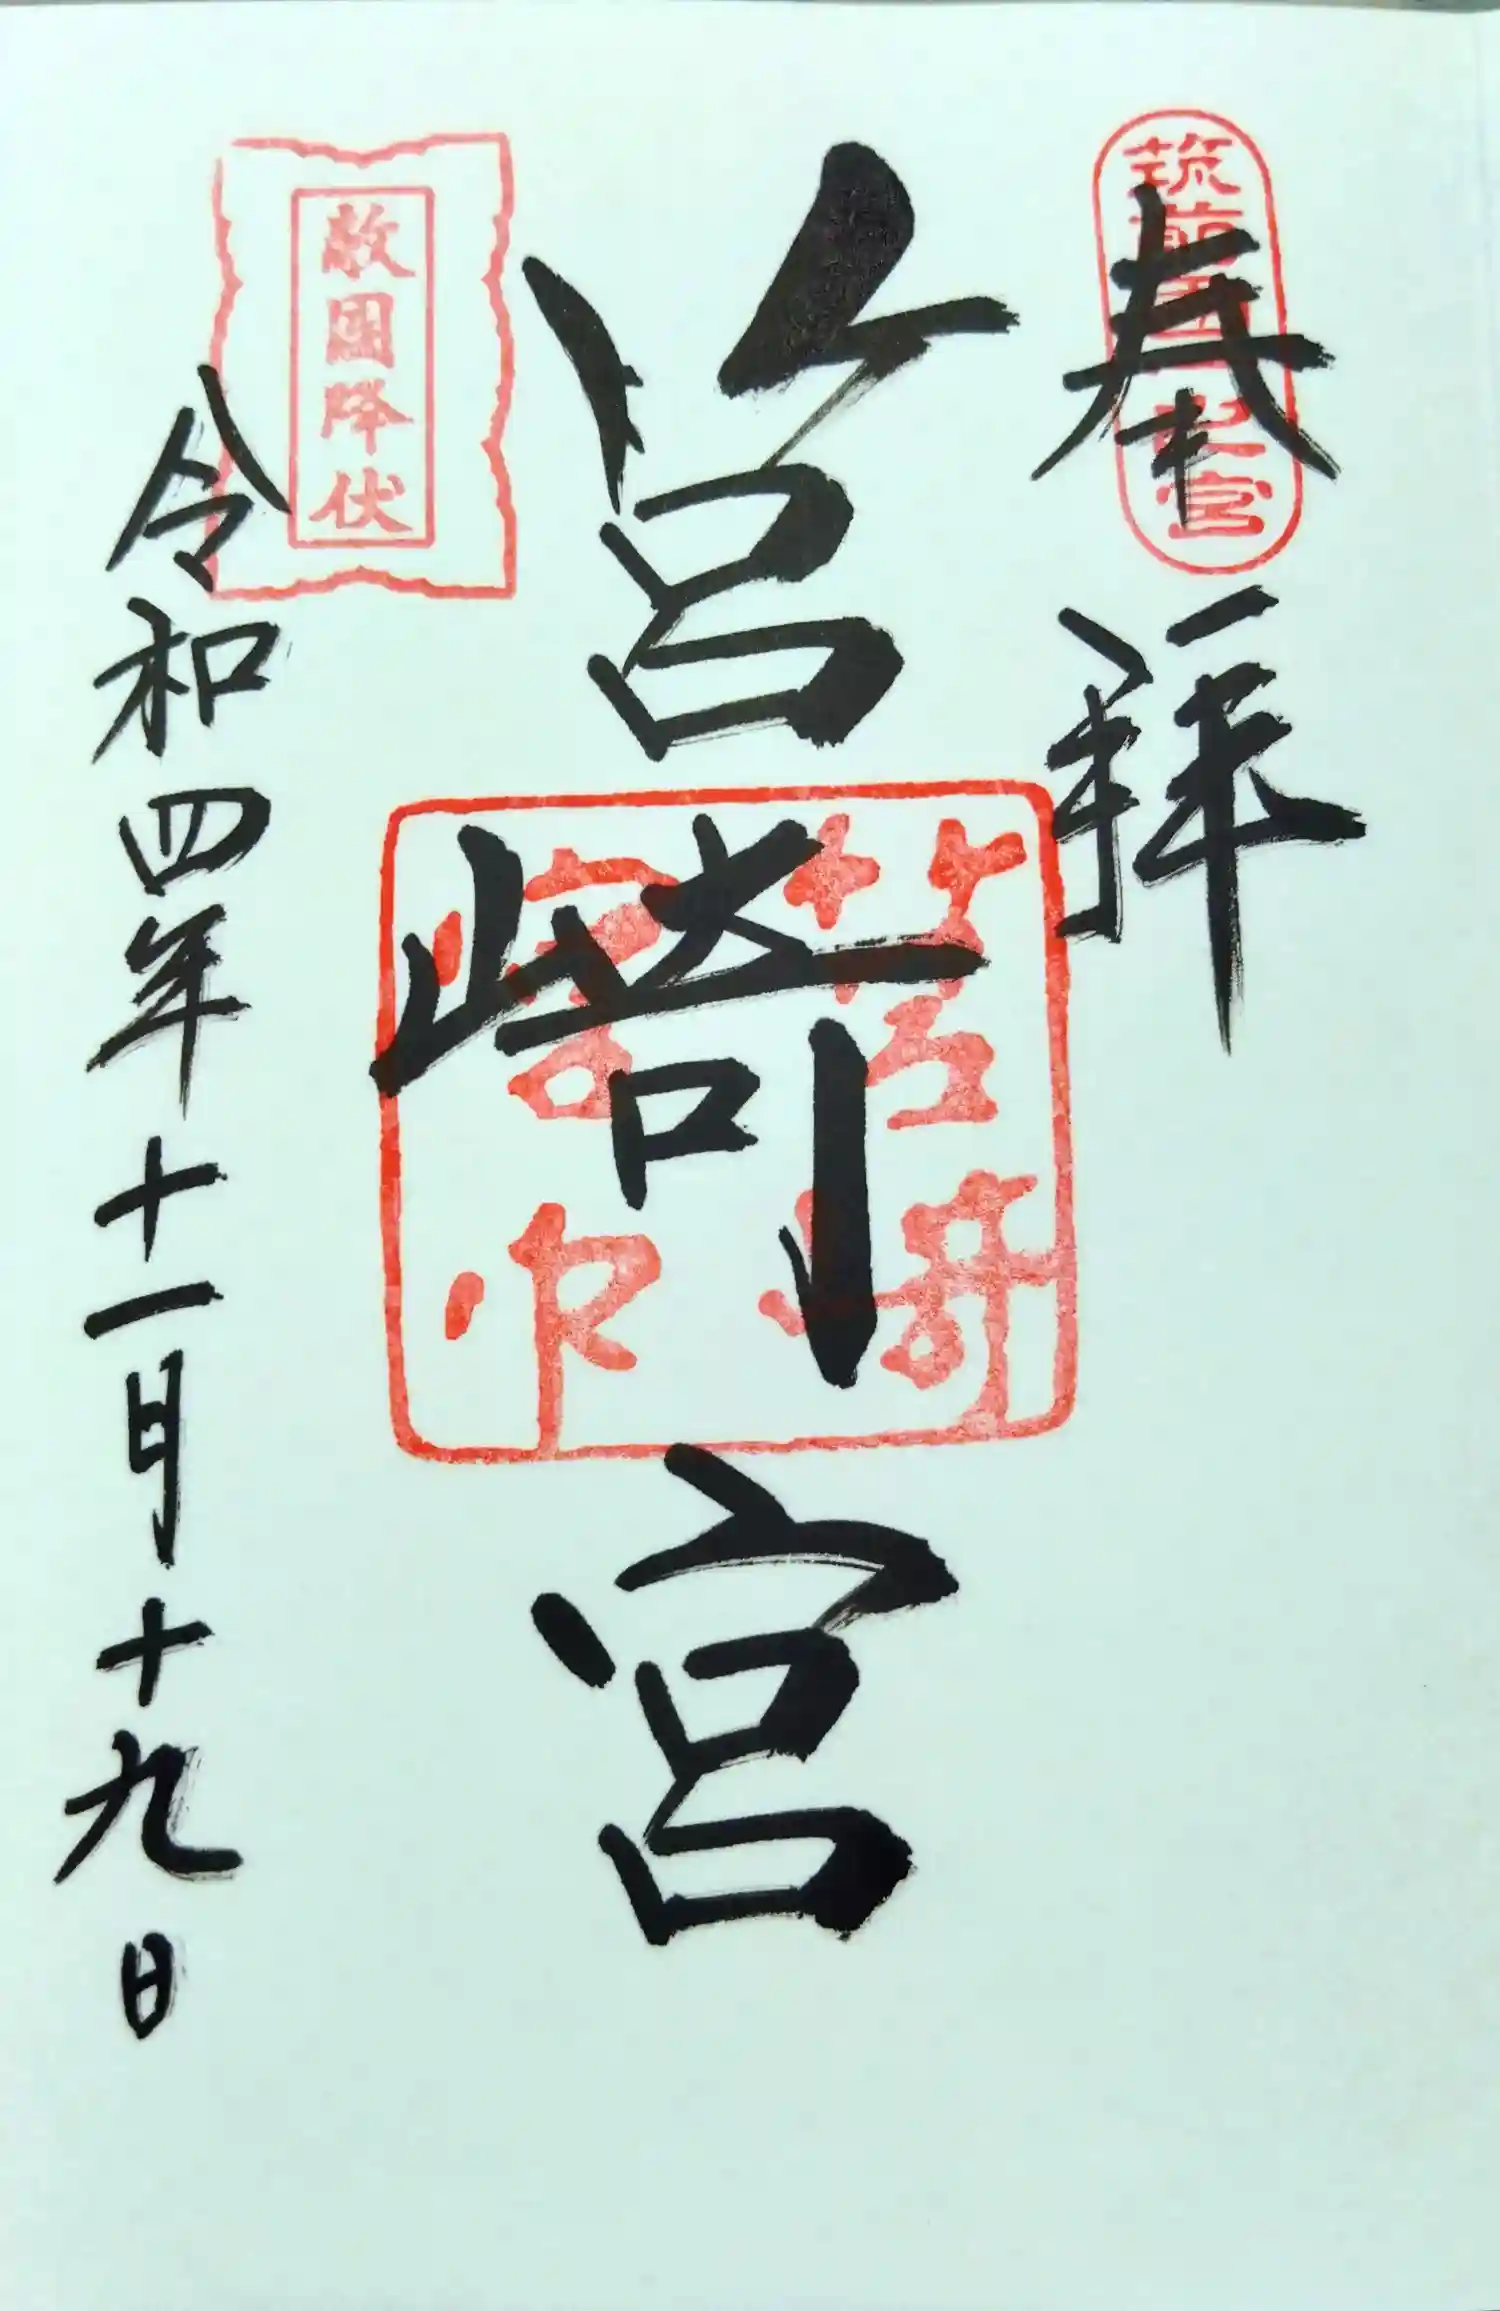 奉拝
筑前国一之宮
筥崎宮
筥崎宮印
敵国降伏
令和四年十一月十九日